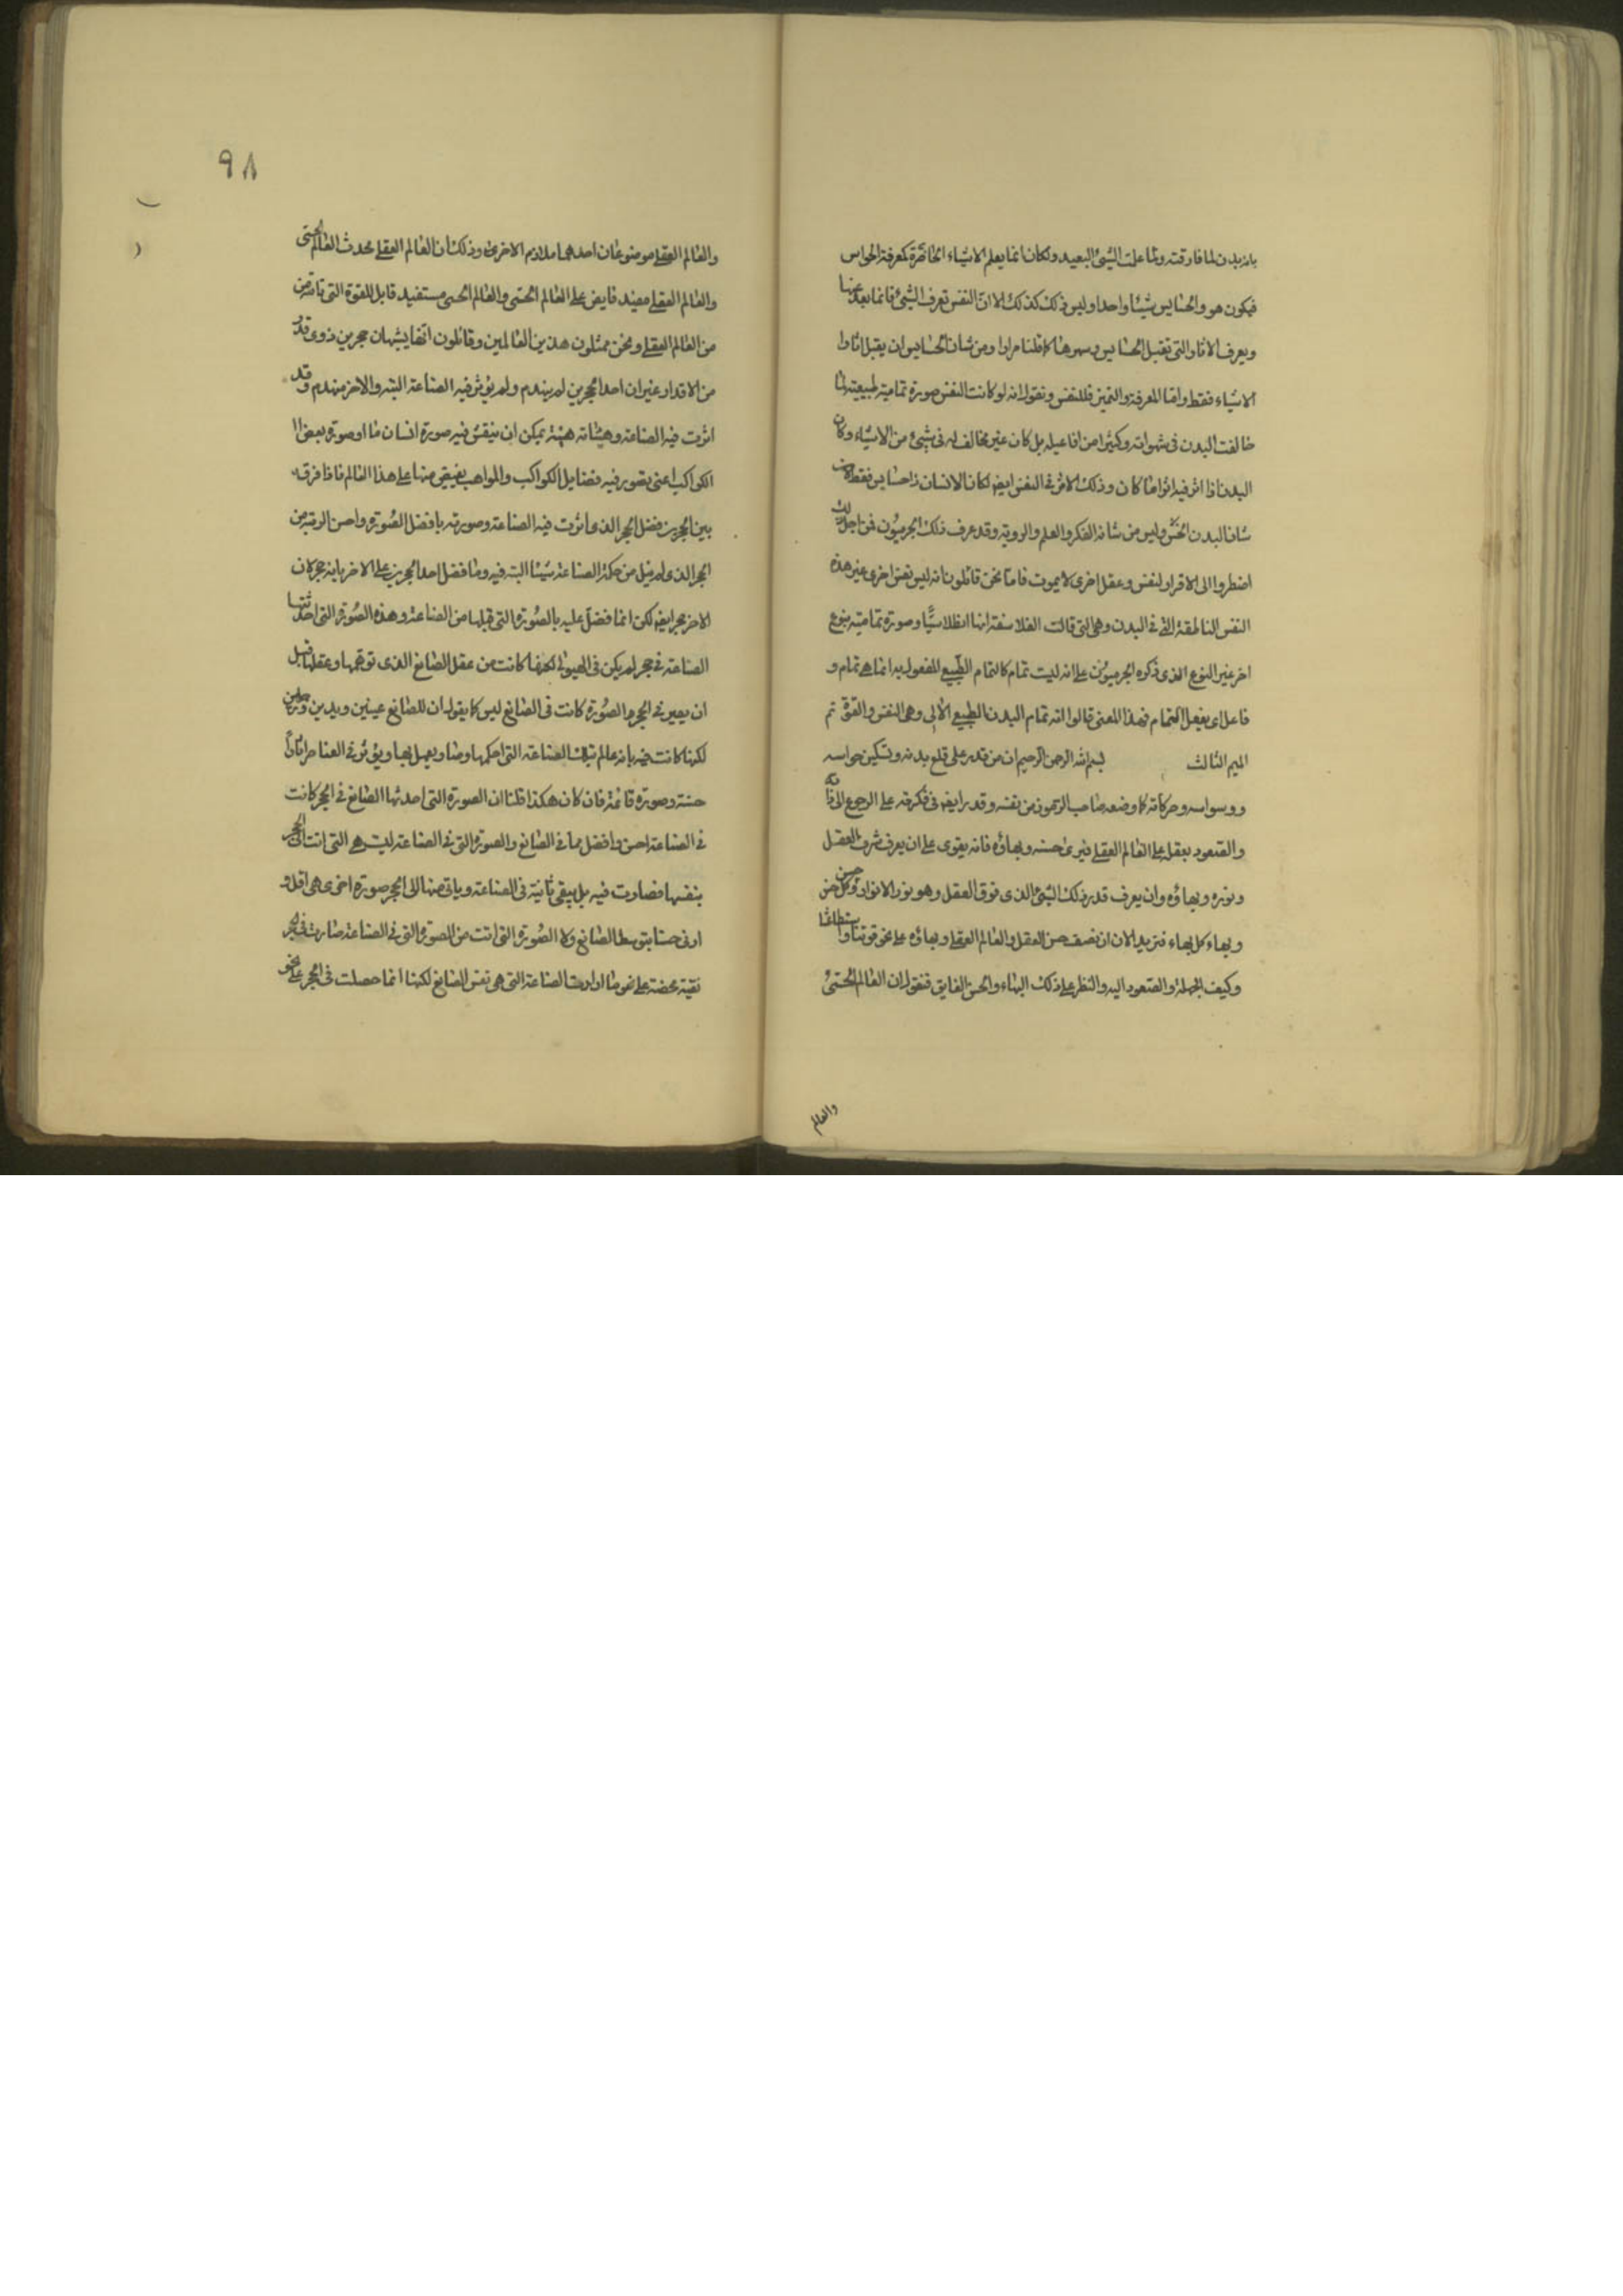 بانه بدن لما فارقته ولما علمت الشئ البعيد ولكان انما يعلم الاشياء الحاضرة كمعرفة الحواس
فيكون هو والحسايس شيئا واحدا وليس ذلك كذلك لان النفس تعرف الشئ فانما بعد عنها
ويعرف الاثار التى تقبل الحسايس كما قلنا مرارا ومن شان الحسايس ان يقبل اثار
الاشياء فقط واما المعرفة والتميز فللنفس ونقول انه لو كانت النفس صورة تمامية طبيعية لما
خالفت البدن فى شهواته وكثيرا من افاعيله بل كان غير مخالف له فى شئ من الاشياء وكان
البدن اذا اثر فيه اثر اما كان وذلك الاثر فى النفس ايضا لكان الانسان ذا حسايس فقط لان
شان البدن الحس وليس من شانه الفكر والعلم والروية وقد عرف ذلك الجرميون فمن اجل ذلك
اضطروا الى الاقرار لنفس وعقل اخرى لا يموت فاما نحن قائلون انه ليس نفس اخرى غير هذه
النفس الناطقة التى فى البدن وهى التى قالت الفلاسفة انها انطلاسيا وصورة تمامية بنوع
اخر غير النوع الذى ذكره الجرميون على انه ليست تمام كالتمام الطبيعى المفعول به انما هى تمام و
فاعل اى يفعل التمام فبهذا المعنى قالوا انه تمام البدن الطبيعى الالى وهى النفس والقوة تم
الميم الثالث بسم الله الرحمن الرحيم ان من قدر على قلع بدنه وتسكين حواسه
ووسواسه وحركاته كما وضعه صاحب الرموز من نفسه وقدر ايضا فى فكرته على الرجوع الى ذاته
والصعود بعقله على العالم العقلى فيرى حسنه وبهاؤه فانه يقوى على ان يعرف شرف العقل
ونوره وبهاؤه وان يعرف قدر ذلك الشئ الذى فوق العقل وهو نور الانوار وحسن كل حسن
وبهاء كل بهاء فنريد الان ان نصف حسن العقل والعالم العقلى وبهاؤه على نحو قوتنا واستطاعتنا
وكيف الجملة والصعود اليه والنظر على ذلك البهاء والحسن الفايق فنقول ان العالم الحسى
والعالم
٩٨
والعالم العقلى موضوعان احدهما ملازم الاخرى وذلك ان العالم العقلى محدث العالم الحسى
والعالم العقلى مفيد فايض على العالم الحسى والعالم الحسى مستفيد قابل للقوة التى تاتيه من
من العالم العقلى ونحن ممثلون هذين العالمين وقائلون انهما يشبهان حجرين ذوى قدر
من الاقدار غير ان احد الحجرين لم يهندم ولم يؤثر فيه الصناعة البتة والاخر مهندم وقد
اثرت فيه الصناعة وهيئاته هيئة يمكن ان ينقش فيه صورة انسان ما او صورة بعض ا
الكواكب اعنى تصور فيه فضايل الكواكب والمواهب يفيض منها على هذا العالم فاذا فرقه
بين الحجرين فضل الحجر الذى اثرت فيه الصناعة وصورته بافضل الصورة واحسن الرتبة من
الحجر الذى لم ينل من حكمة الصناعة شيئا البتة فيه وما فضل احد الحجرين على الاخر بانه حجر كان
الاخر حجر ايضا لكن انما فضل عليه بالصورة التى قبلها من الصناعة وهذه الصورة التى احدثتها
الصناعة فى حجر لم يكن فى الهيولى لكنها كانت من عقل الصانع الذى توهمها وعقلها قبل
ان يصير فى الحجر الصورة كانت فى الصانع ليس كما يقول ان للصانع عينين ويدين ورجلين
لكنها كانت فيه بانه عالم بتلك الصناعة التى احكمها وصار يعمل بها ويؤثر فى العناصر اثارا
حسنة وصورة قائمة فان كان هكذا قلنا ان الصورة التى احدثها الصانع فى الحجر كانت
فى الصناعة احسن وافضل مما فى الصانع والصورة التى فى الصناعة ليست هى التى اتت الى الحجر
بنفسها فصارت فيه بل يبقى ثابتة فى الصناعة وياتى منها الى الحجر صورة اخرى هى اقل و
ادنى حسنا بتوسط الصانع ولا الصورة التى اتت من الصورة التى فى الصناعة صارت فى الحجر
نقية محضة على نحو ما ارادت الصناعة التى هى نفس الصانع لكنها انما حصلت فى الحجر على نحو